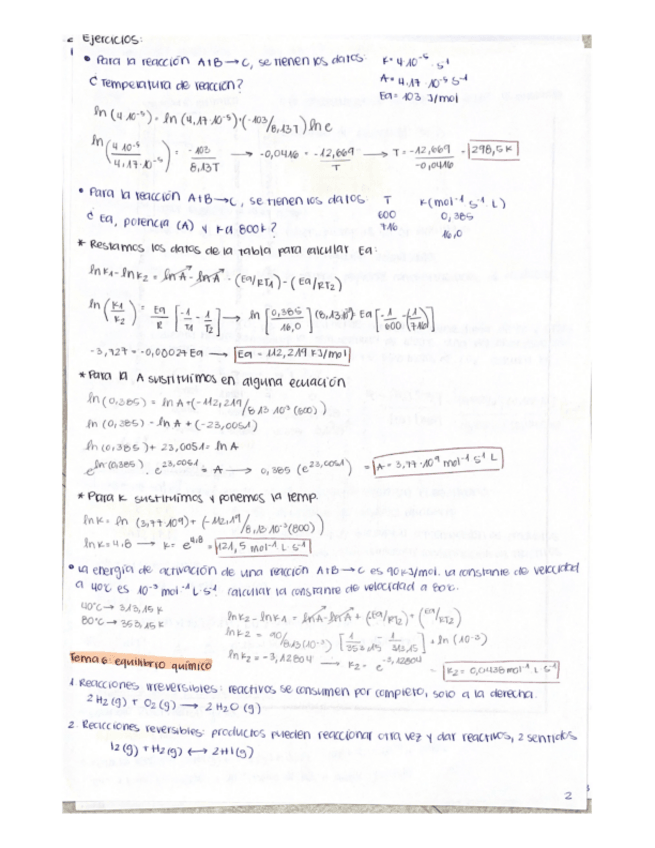 Ejercicios:
• Para la reacción A+B→C, se tienen los datos: K=4·10⁻⁵ · s⁻¹
¿Temperatura de reacción? A=4,17·10⁻⁵ s⁻¹
Ea=103 J/mol
ln(4·10⁻⁵)=ln(4,17·10⁻⁵)+(-103/8,13T)lne
ln(4·10⁻⁵/4,17·10⁻⁵) = -103/8,13T → -0,0416 = -12,669/T → T = -12,669/-0,0416 = 298,5K
• Para la reacción A+B→C, se tienen los datos: T K(mol⁻¹ s⁻¹ L)
¿Ea, potencia (A) y K a 800K? 600 0,385
716 16,0
* Restamos los datos de la tabla para calcular Ea:
lnK1-lnK2 = lnA - lnA - (Ea/RT1) - (Ea/RT2)
ln(K1/K2) = Ea/R [-1/T1 - 1/T2] → ln[0,385/16,0] (8,13·10³) Ea[-1/600 -(1/716)]
-3,727 = -0,00027 Ea → Ea = 112,219 KJ/mol
* Para la A sustituimos en alguna ecuación
ln(0,385) = lnA+(-112,219/8,13·10⁻³(600))
ln(0,385) = lnA + (-23,0051)
ln(0,385)+23,0051 = lnA
e^ln(0,385) · e^23,0051 = A → 0,385 (e^23,0051) = A = 3,77·10⁹ mol⁻¹ s⁻¹ L
* Para K sustituimos y ponemos la temp.
lnK = ln(3,77·10⁹)+(-112,19/8,13·10⁻³(800))
lnK = 4,8 → K = e^4,8 = 121,5 mol⁻¹ L s⁻¹
• La energía de activación de una reacción A+B→C es 90KJ/mol. La constante de velocidad
a 40ºC es 10⁻³ mol⁻¹ L·s⁻¹. Calcular la constante de velocidad a 80ºC.
40ºC → 313,15K
80ºC → 353,15K
lnK2 - lnK1 = lnA - lnA + (Ea/RT2) + (Ea/RT2)
lnK2 = 90/8,13(10⁻³) [1/353,15 - 1/313,15] + ln(10⁻³)
lnK2 = -3,12804 → K2 = e^-3,12804 = K2 = 0,0438 mol⁻¹ L s⁻¹
Tema 6: equilibrio químico
1. Reacciones irreversibles: reactivos se consumen por completo, solo a la derecha.
2H₂(g) + O₂(g) → 2H₂O(g)
2. Reacciones reversibles: productos pueden reaccionar otra vez y dar reactivos, 2 sentidos
I₂(g) + H₂(g) ↔ 2HI(g)
2